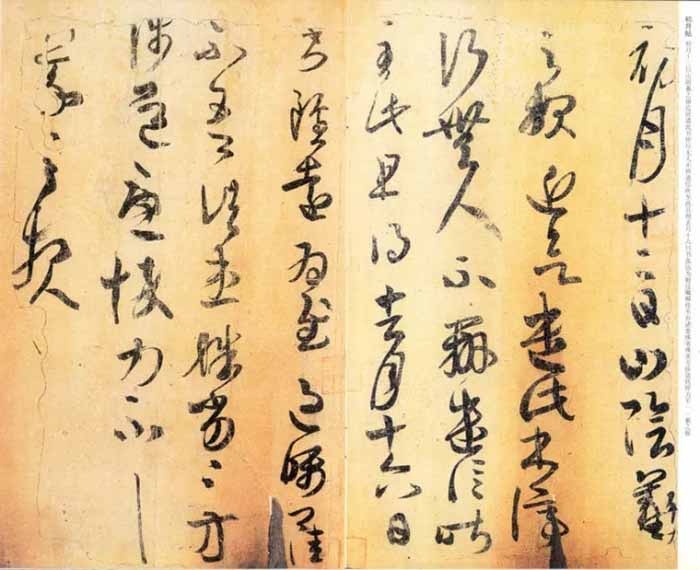 初月十二日山陰羲
之報近欲遣此書停
行無人不辦遣信昨
至此且得去月十六日
書雖遠為慰過囑卿佳
不吾諸患殊劣殊劣方
涉道憂悴力不
羲之報
初月帖